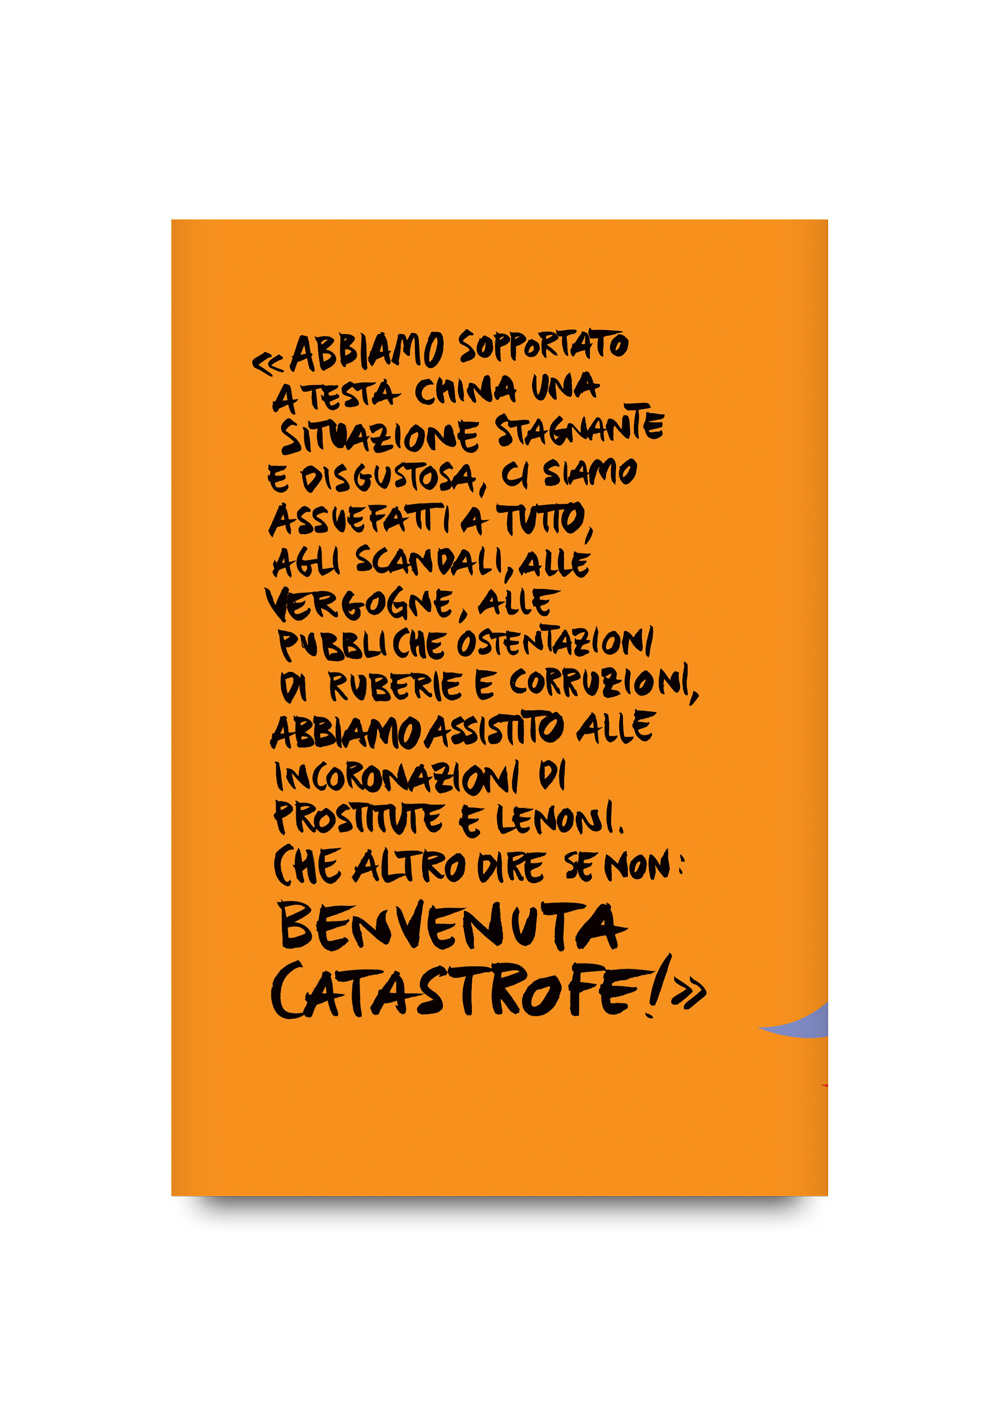 «ABBIAMO SOPPORTATO
A TESTA CHINA UNA
SITUAZIONE STAGNANTE
E DISGUSTOSA, CI SIAMO
ASSUEFATTI A TUTTO,
AGLI SCANDALI, ALLE
VERGOGNE, ALLE
PUBBLICHE OSTENTAZIONI
DI RUBERIE E CORRUZIONI,
ABBIAMO ASSISTITO ALLE
INCORONAZIONI DI
PROSTITUTE E LENONI.
CHE ALTRO DIRE SE NON:
BENVENUTA
CATASTROFE!»